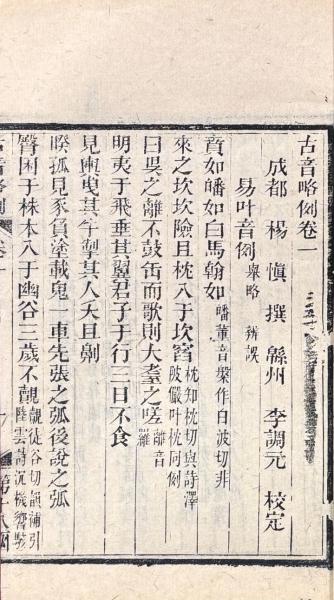 古音略例卷一
成都 楊 慎 撰 緜州 李調元 校定
易叶音例 舉略 辨誤
賁如皤如白馬翰如 皤董音槃作白波切非
來之坎坎險且枕入于坎窞 枕知枕切與詩澤陂儼叶枕同例
日昃之離不鼓缶而歌則大耋之嗟 離音羅
明夷于飛垂其翼君子于行三日不食
見輿曳其牛掣其人天且劓
睽孤見豕負塗載鬼一車先張之弧後說之弧
臀困于株木入于幽谷三歲不覿 覿徒谷切韻補引陸雲詩沉機響駭
古音略例